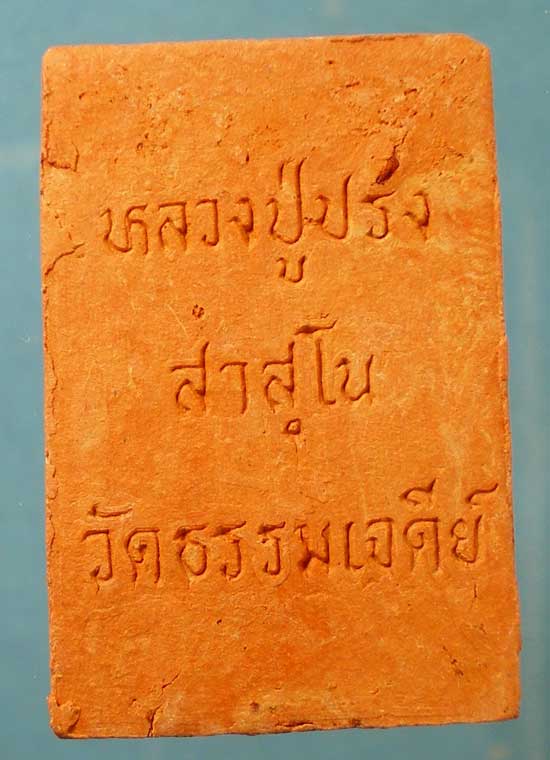 หลวงปู่ปรง
สาสฺโน
วัดธรรมเจดีย์